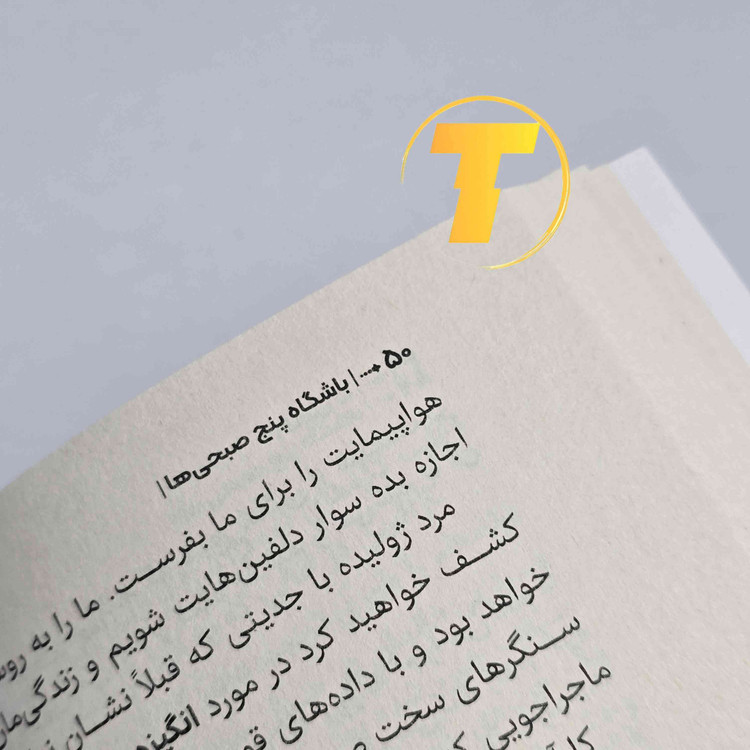 T
۵۰ | باشگاه پنج صبحی‌ها |
هواپیمایت را برای ما بفرست. ما را به
اجازه بده سوار دلفین‌هایت شویم و زندگی‌مان
مرد ژولیده با جدیتی که قبلاً نشان
کشف خواهید کرد در مورد
خواهد بود و با داده‌های
سنگرهای سخت
ماجراجویی